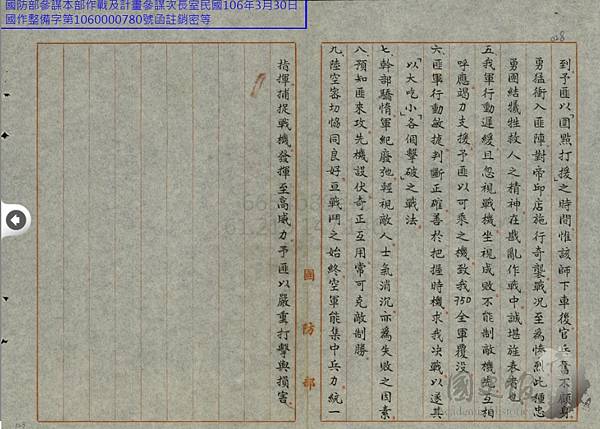 國防部參謀本部作戰及計畫參謀次長室民國106年3月30日
國作整備字第1060000780號函註銷密等
028
到予匪以「圍點打援」之時間惟該師下車後官兵奮不顧身
勇猛衝入匪陣對帝印店施行奇襲戰況至為慘烈此種忠
勇團結犧牲救人之精神在戡亂作戰中誠堪旌表者也
五我軍行動遲緩且忽視戰機坐視成敗不能制敵機先互相
呼應竭力支援予匪以可乘之機致我750全軍覆沒
六匪軍行動敏捷判斷正確善於把握時機求我決戰以遂其
「以大吃小」各個擊破之戰法
七幹部驕惰軍紀廢弛輕視敵人士氣消沉亦為失敗之因素
八預知匪來攻先機設伏奇正互用常可克敵制勝
九陸空密切協同良好亘戰鬥之始終空軍能集中兵力統一
國防部
指揮捕捉戰機發揮至高威力予匪以嚴重打擊與損害